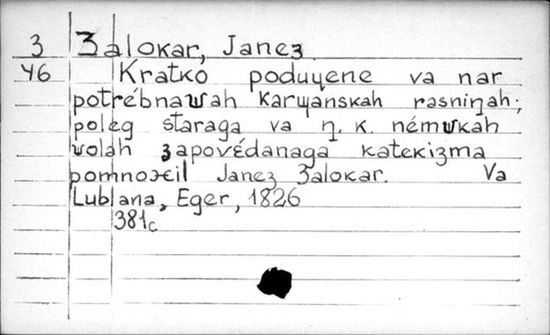 3 Ʒalokar, Janeʒ
46 Kratko poduɥene va nar
potrébnaɯah karɥanskah rasniŋah;
poleg staraga va ŋ. k. némɯkah
ɯolah ʒapovédanaga katekiʒma
pomnoӿil Janeʒ Ʒalokar. Va
Lublana, Eger, 1826
381c